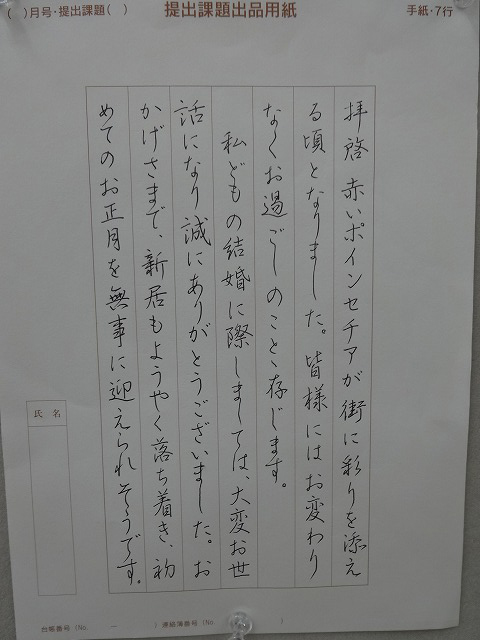 ( )月号・提出課題( )
提出課題出品用紙
手紙・7行
拝啓 赤いポインセチアが街に彩りを添え
る頃となりました。皆様にはお変わり
なくお過ごしのことゝ存じます。
私どもの結婚に際しましては、大変お世
話になり誠にありがとうございました。お
かげさまで、新居もようやく落ち着き、初
めてのお正月を無事に迎えられそうです。
氏名
台帳番号(No. ー )連絡簿番号(No. )